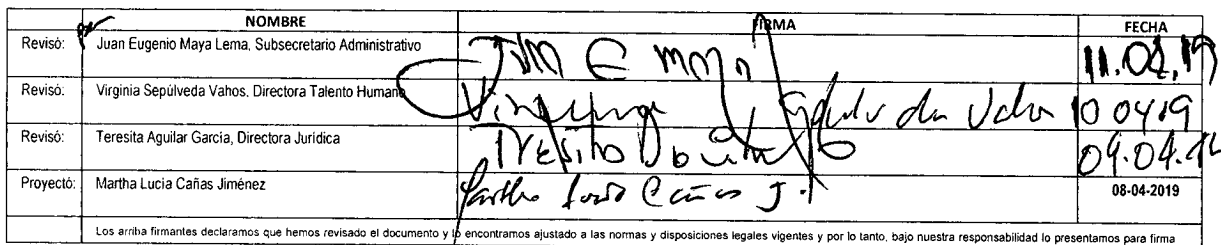 NOMBRE FIRMA FECHA
Revisó: Juan Eugenio Maya Lema, Subsecretario Administrativo Juan E Maya 11.04.19
Revisó: Virginia Sepúlveda Vahos, Directora Talento Humano 10 04 19
Revisó: Teresita Aguilar García, Directora Jurídica 09.04.
Proyectó: Martha Lucia Cañas Jiménez Martha Lucía Cañas J. 08-04-2019
Los arriba firmantes declaramos que hemos revisado el documento y lo encontramos ajustado a las normas y disposiciones legales vigentes y por lo tanto, bajo nuestra responsabilidad lo presentamos para firma